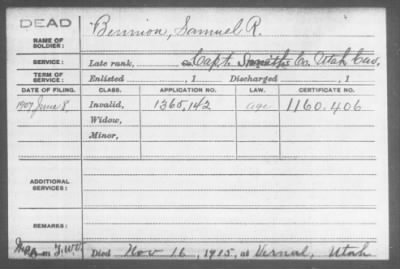 DEAD
NAME OF SOLDIER: Bennion, Samuel R.
SERVICE: Late rank, Capt. Smith's Co. Utah Cav.
TERM OF SERVICE: Enlisted , 1 Discharged , 1
DATE OF FILING. CLASS. APPLICATION NO. LAW. CERTIFICATE NO.
1907 June 8. Invalid, 1365,142 age 1160.406
Widow,
Minor,
ADDITIONAL SERVICES:
REMARKS:
Died Nov 16, 1915, at Vernal, Utah